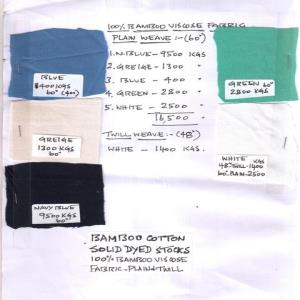 100% BAMBOO VISCOSE FABRIC
PLAIN WEAVE :- (60")
1. N. BLUE - 9500 KGS
2. GREIGE - 1300 "
3. BLUE - 400 "
4. GREEN - 2800 "
5. WHITE - 2500 "
16,500 "
TWILL WEAVE :- (48")
WHITE - 1400 KGS.
BLUE
400 KGS
60" (400)
GREIGE
1300 KGS
60"
NAVY BLUE
9500 KG
60"
GREEN 60"
2800 KGS
WHITE KGS
48" TWILL-1400
60" PLAIN-2500
BAMBOO COTTON
SOLID DYED STOCKS
100% BAMBOO VISCOSE
FABRIC - PLAIN & TWILL